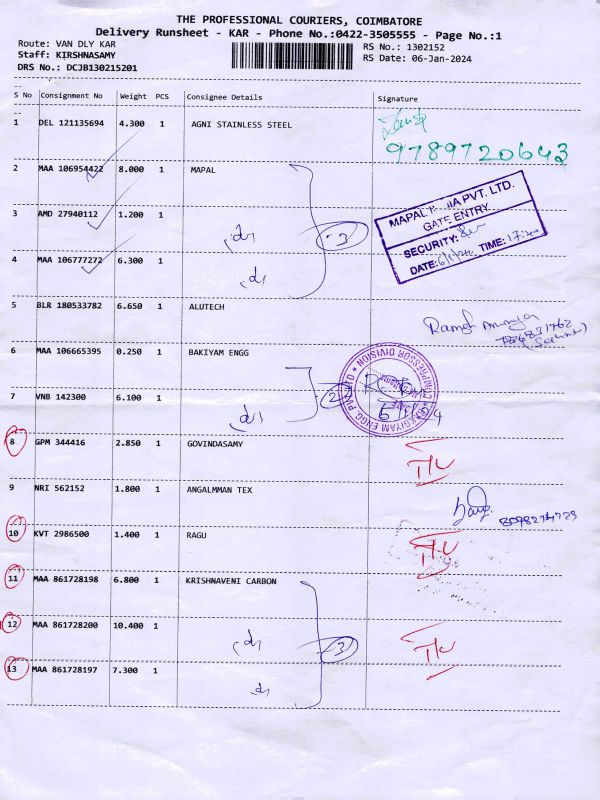 THE PROFESSIONAL COURIERS, COIMBATORE
Delivery Runsheet - KAR - Phone No.:0422-3505555 - Page No.:1
Route: VAN DLY KAR RS No.: 1302152
Staff: KIRSHNASAMY RS Date: 06-Jan-2024
DRS No.: DCJB130215201
S No Consignment No Weight PCS Consignee Details Signature
1 DEL 121135694 4.300 1 AGNI STAINLESS STEEL
9789720643
2 MAA 106954422 8.000 1 MAPAL
MAPAL PVT. LTD.
GATE ENTRY
SECURITY:
DATE: TIME:
3 AMD 27940112 1.200 1 3
4 MAA 106777272 6.300 1
5 BLR 180533782 6.650 1 ALUTECH
6 MAA 106665395 0.250 1 BAKIYAM ENGG
7 VNB 142300 6.100 1 2
8 GPM 344416 2.850 1 GOVINDASAMY
9 NRI 562152 1.800 1 ANGALMMAN TEX
10 KVT 2986500 1.400 1 RAGU
11 MAA 861728198 6.800 1 KRISHNAVENI CARBON
12 MAA 861728200 10.400 1 3
13 MAA 861728197 7.300 1